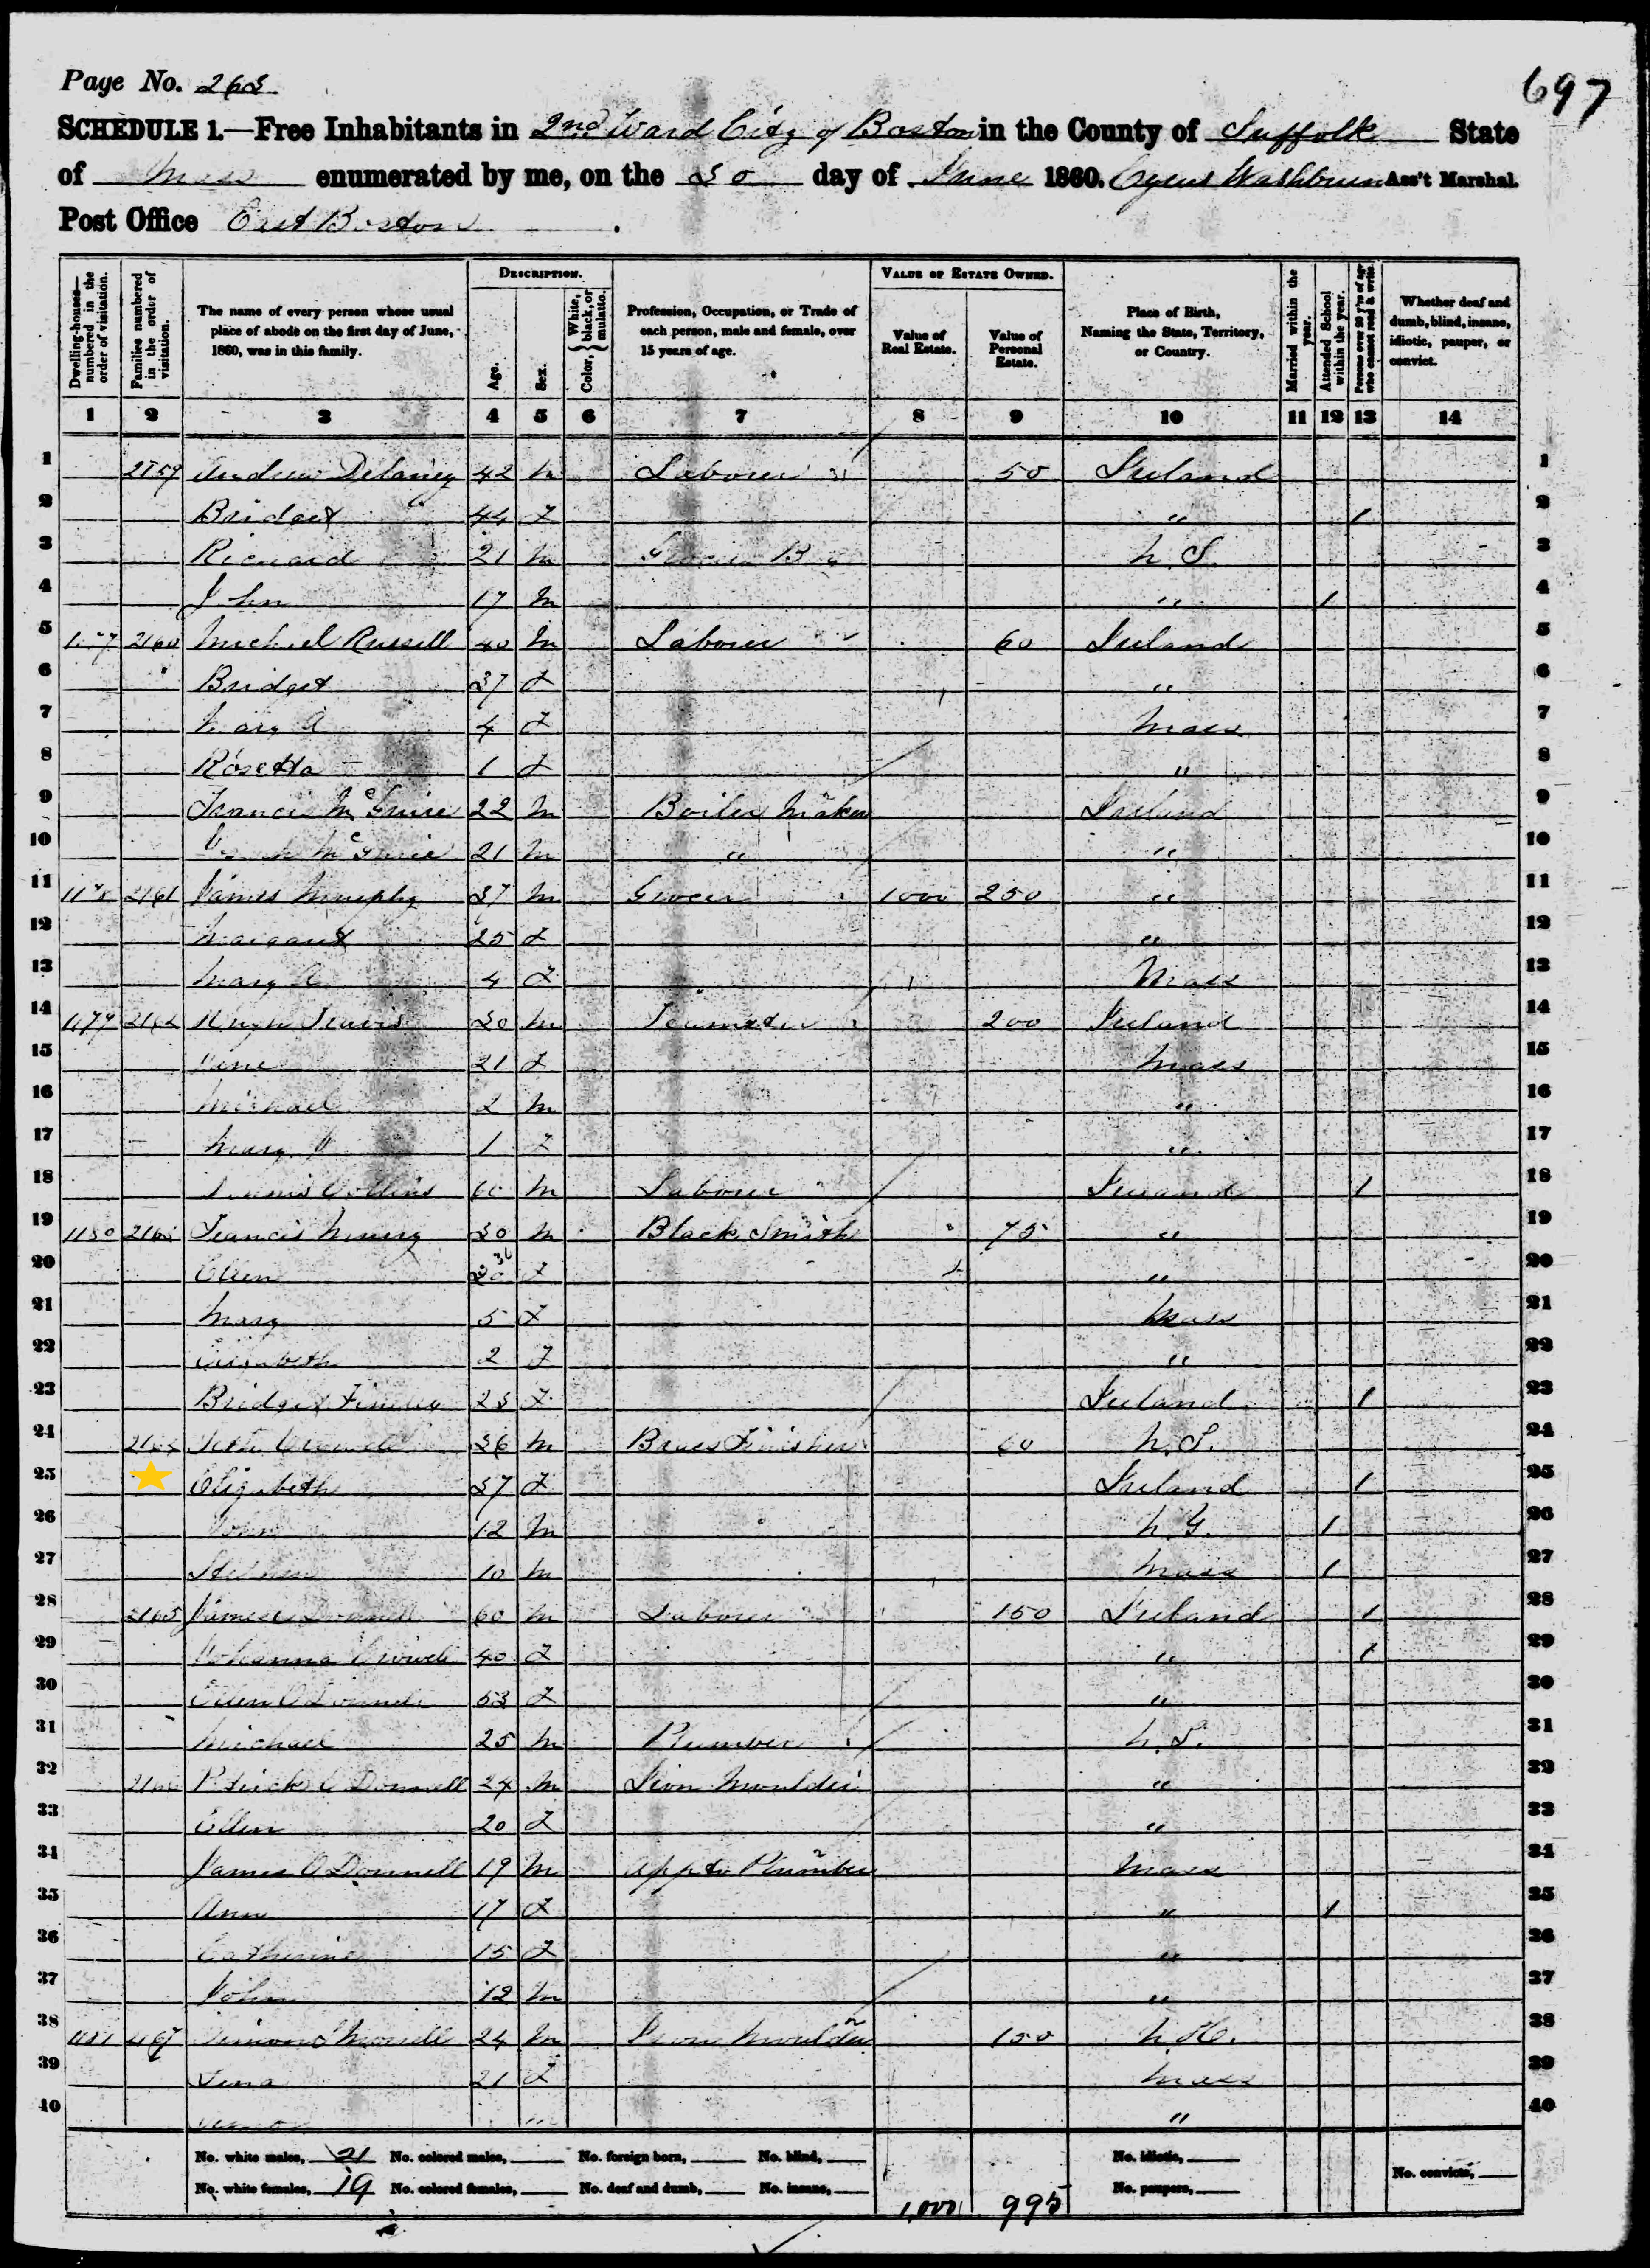 Page No. 263
697
SCHEDULE 1.—Free Inhabitants in 2nd Ward City of Boston in the County of Suffolk State
of Mass enumerated by me, on the 30 day of June 1860. Cyrus Washburn Ass't Marshal.
Post Office East Boston.
Dwelling-houses—numbered in the order of visitation.
Families numbered in the order of visitation.
The name of every person whose usual place of abode on the first day of June, 1860, was in this family.
DESCRIPTION.
Age.
Sex.
Color, { White, black, or mulatto.
Profession, Occupation, or Trade of each person, male and female, over 15 years of age.
VALUE OF ESTATE OWNED.
Value of Real Estate.
Value of Personal Estate.
Place of Birth, Naming the State, Territory, or Country.
Married within the year.
Attended School within the year.
Persons over 20 y'rs of age who cannot read & write.
Whether deaf and dumb, blind, insane, idiotic, pauper, or convict.
1 2 3 4 5 6 7 8 9 10 11 12 13 14
1 2159 Andrew Delaney 42 m Labourer 50 Ireland 1
2 Bridget 44 f " / 2
3 Richard 21 m 3
4 John 17 m " / 4
5 2160 Michael Russell 40 m Labourer 60 Ireland 5
6 Bridget 37 f " 6
7 Mary A 4 f Mass 7
8 Rosetta 1 f " 8
9 Francis McGuire 22 m Boiler Maker Ireland 9
10 McGuire 21 m " " 10
11 2161 James Murphy 37 m Grocer 1000 250 " 11
12 Margaret 25 f " 12
13 Mary A 4 f Mass 13
14 2162 Hugh Travis 30 m Teamster 200 Ireland 14
15 Jane 21 f Mass 15
16 Michael 2 m " 16
17 Mary 1 f " 17
18 Dennis Collins 60 m Labourer Ireland / 18
19 1180 2163 Francis Murry 30 m Black Smith 75 " 19
20 Ellen 36 f " 20
21 Mary 5 f Mass 21
22 Elizabeth 2 f " 22
23 Bridget 23 f Ireland / 23
24 36 m Brass Finisher 60 24
25 Elizabeth 37 f Ireland / 25
26 John 12 m / 26
27 Stephen 10 m Mass / 27
28 2165 James 60 m Labourer 150 Ireland / 28
29 Johanna 40 f " / 29
30 Ellen O Donnell 53 f " 30
31 Michael 25 m Plumber 31
32 2166 Patrick O Donnell 24 m Iron Moulder " 32
33 Ellen 20 f " 33
34 James O Donnell 19 m app to Plumber Mass 34
35 Ann 17 f " / 35
36 Catherine 15 f " 36
37 John 12 m " 37
38 1181 2167 24 m Iron Moulder 150 N.H. 38
39 21 f Mass 39
40 " 40
No. white males, 21 No. colored males, No. foreign born, No. blind, No. idiotic,
No. convicts,
No. white females, 19 No. colored females, No. deaf and dumb, No. insane, 1,000 995 No. paupers,